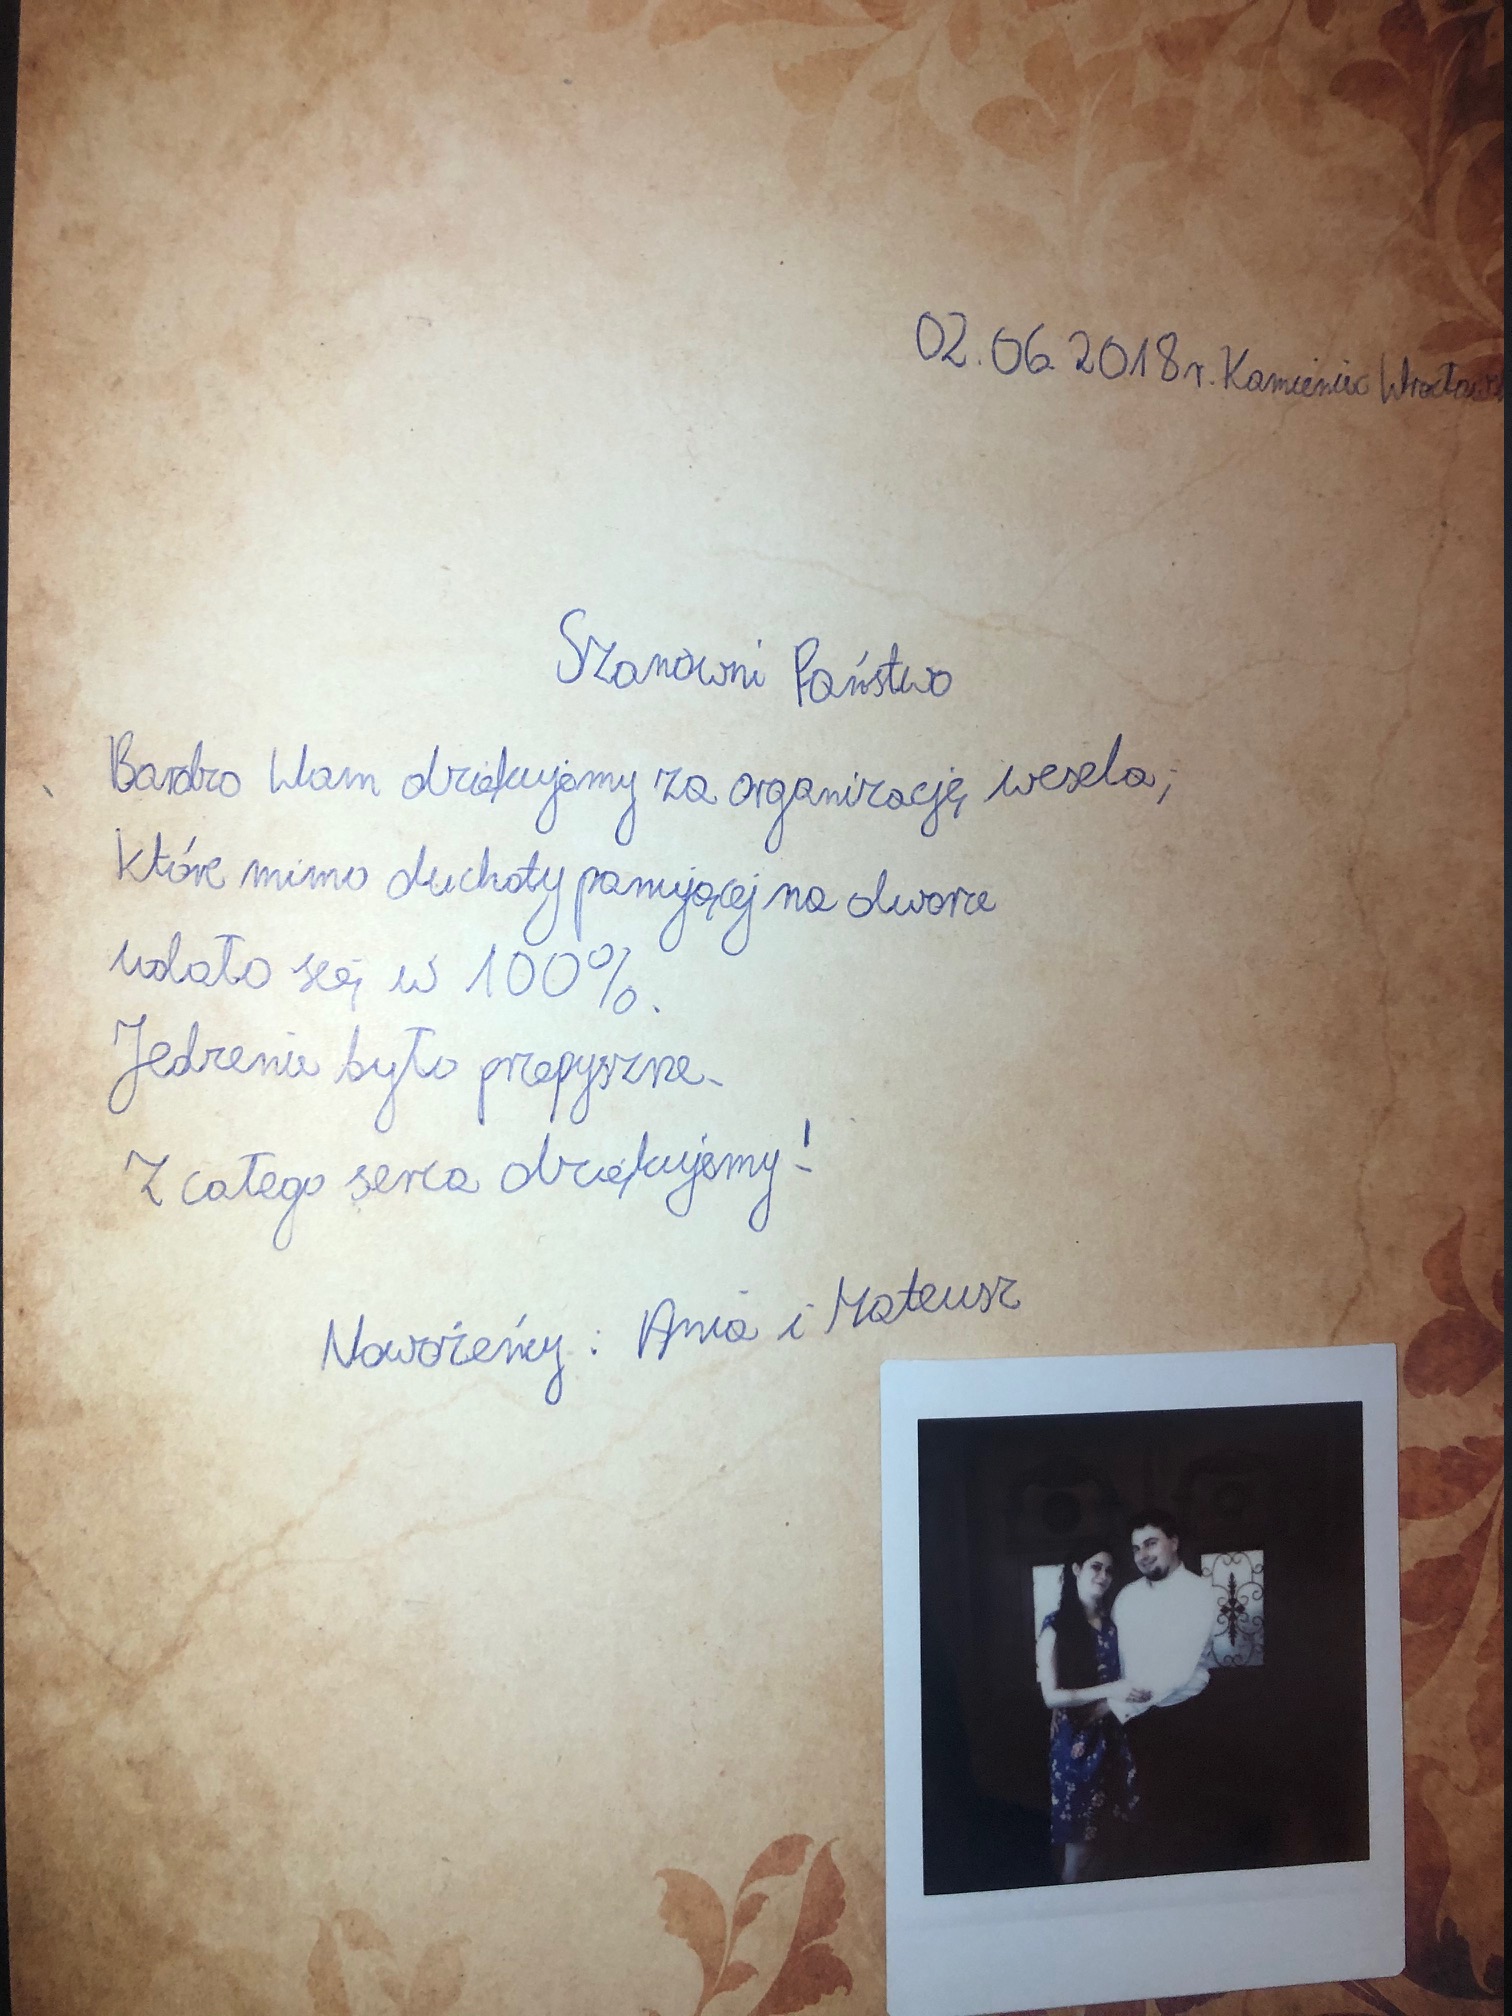 02.06.2018r. Kamieniec Wrocławs
Szanowni Państwo
Bardzo Wam dziękujemy za organizację wesela,
które mimo duchoty panującej na dworze
udało się w 100%.
Jedzenie było przepyszne.
Z całego serca dziękujemy!
Nowożeńcy: Ania i Mateusz